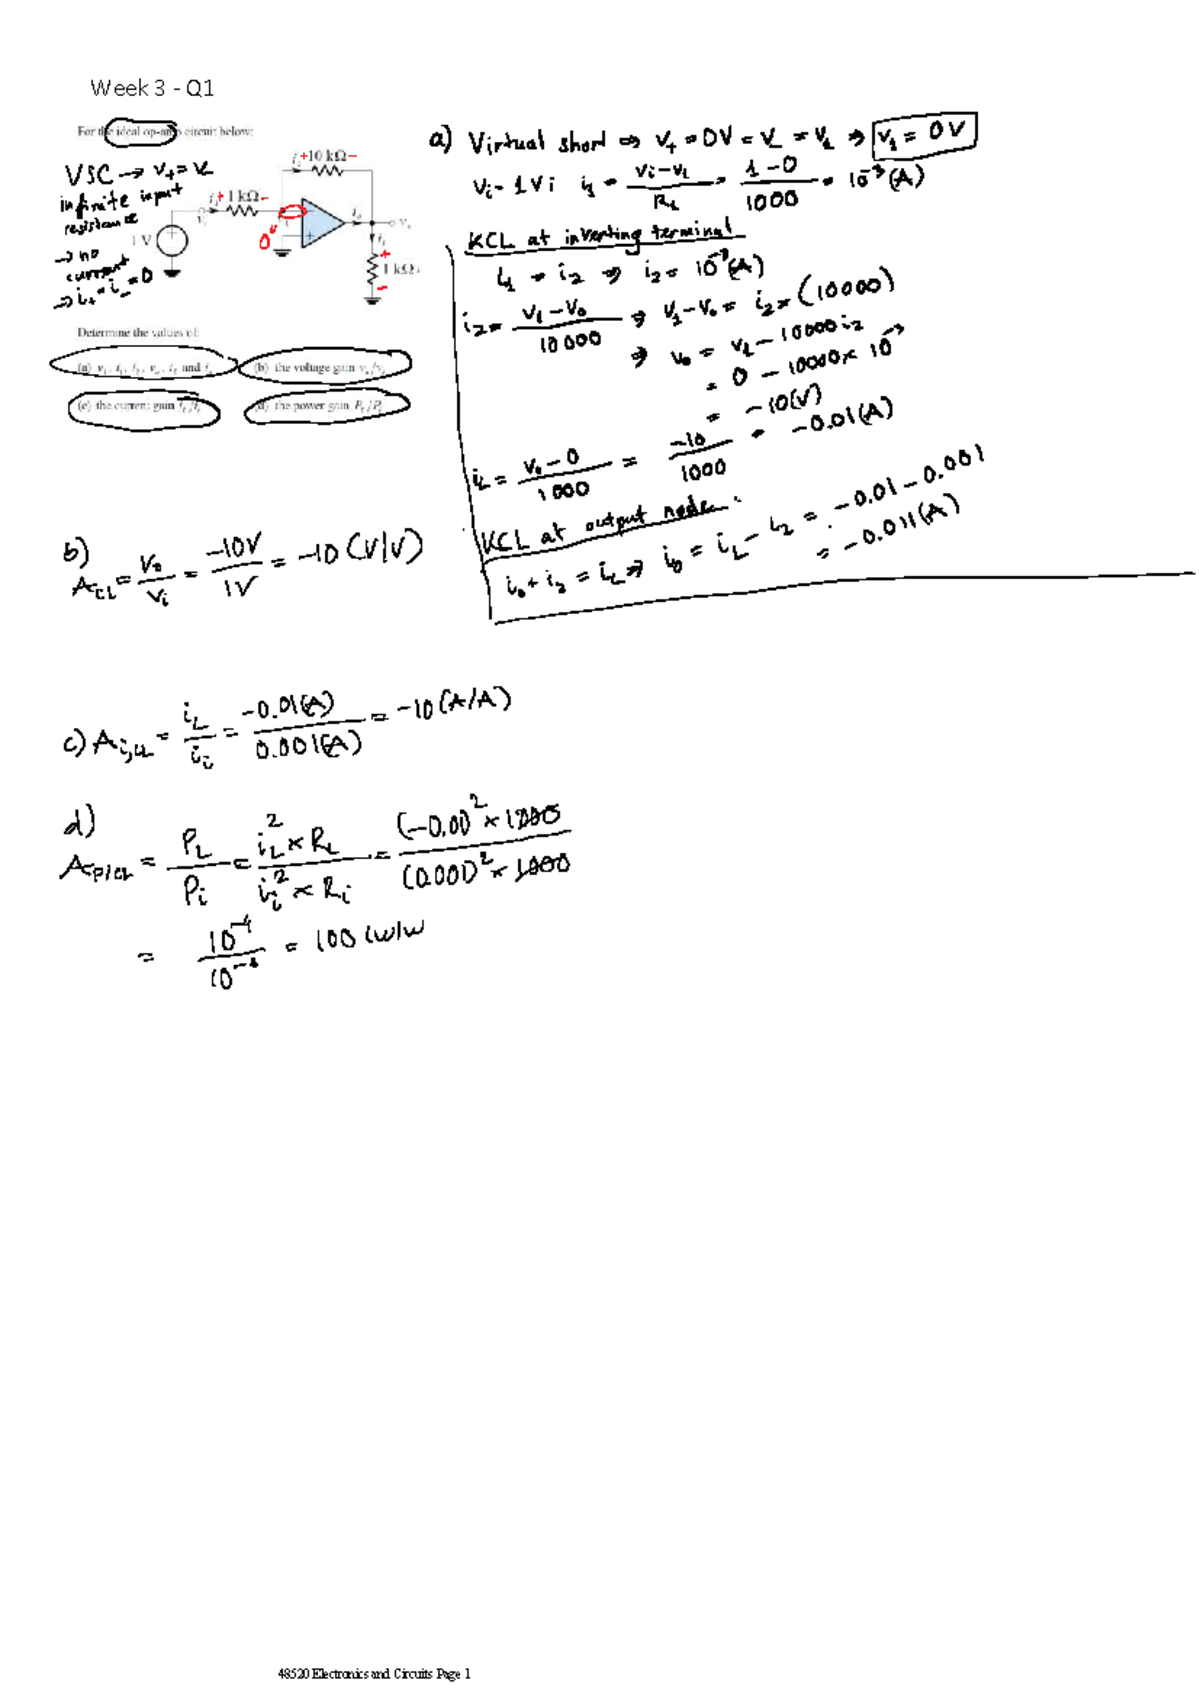 Week 3 - Q1
For the ideal op-amp circuit below:
VSC → V+ = V-
infinite input
resistance
→ no
current
→ i+ = i- = 0
+10 kΩ−
+1 kΩ−
1 V
0
+
1 kΩ
−
Determine the values of:
(a) v₁, i₁, i₂, vₒ, i_L and iₒ
(b) the voltage gain vₒ/vᵢ
(c) the current gain i_L/iᵢ
(d) the power gain P_L/Pᵢ
a) Virtual short ⇒ V+ = 0V = V- = V₁ ⇒ V₁ = 0V
Vi = 1V i₁ = (Vi − V₁)/R₁ = (1 − 0)/1000 = 10⁻³ (A)
KCL at inverting terminal
i₁ = i₂ ⇒ i₂ = 10⁻³ (A)
i₂ = (V₁ − Vₒ)/10000 ⇒ V₁ − Vₒ = i₂ × (10000)
⇒ Vₒ = V₁ − 10000 i₂
= 0 − 10000 × 10⁻³
= −10(V)
i_L = (Vₒ − 0)/1000 = −10/1000 = −0.01(A)
KCL at output node:
iₒ + i₂ = i_L ⇒ iₒ = i_L − i₂ = −0.01 − 0.001
= −0.011(A)
b)
A_CL = Vₒ/Vi = −10V/1V = −10 (V/V)
c) A_i,CL = i_L/i_i = −0.01(A)/0.001(A) = −10 (A/A)
d)
A_P/CL = P_L/P_i = (i_L² × R_L)/(i_i² × R_i) = ((−0.01)² × 1000)/((0.001)² × 1000)
= 10⁻⁴/10⁻⁶ = 100 (W/W
48520 Electronics and Circuits Page 1